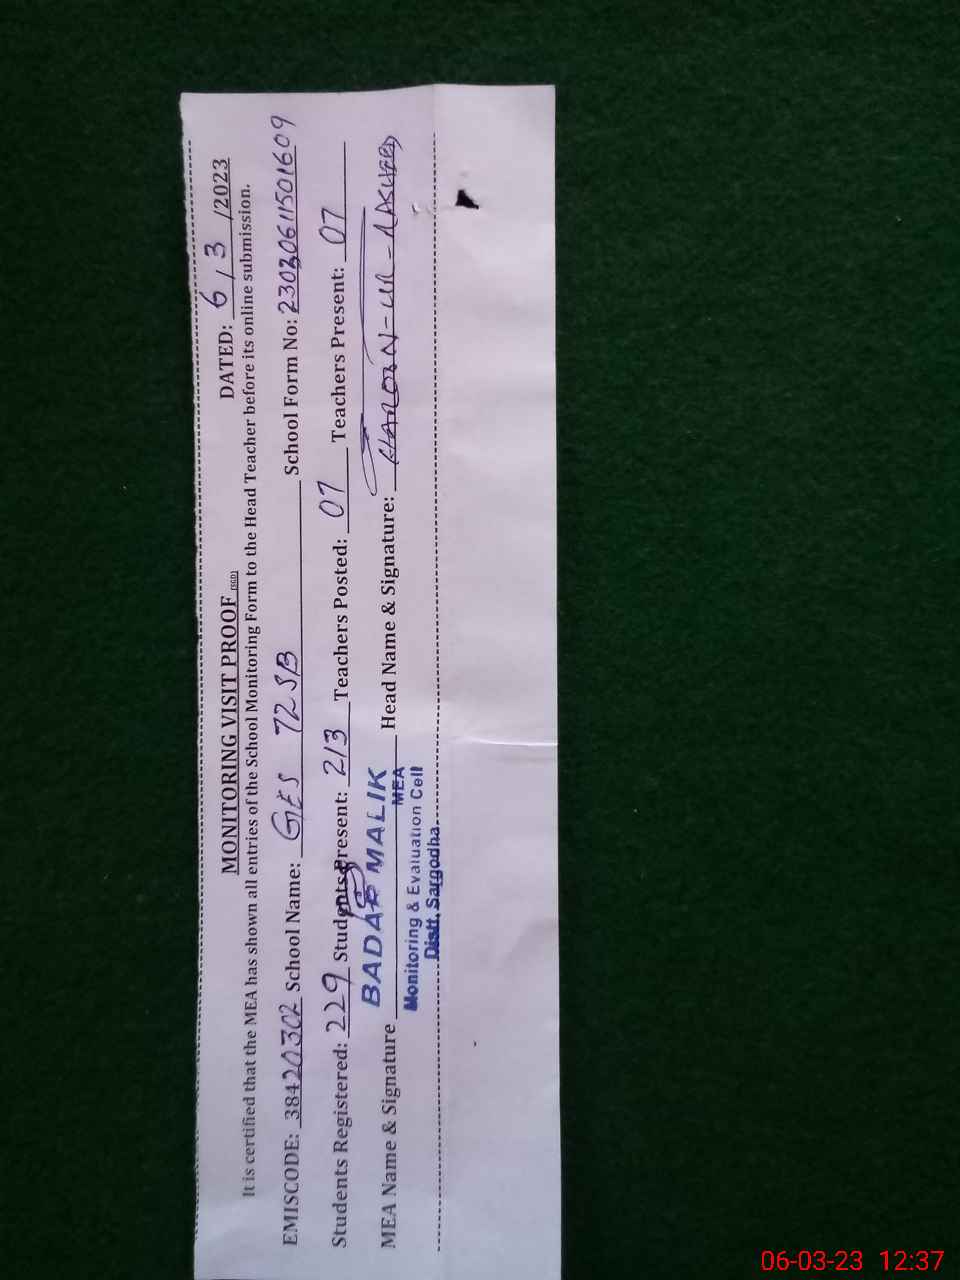 MONITORING VISIT PROOF (SGD) DATED: 6 / 3 /2023
It is certified that the MEA has shown all entries of the School Monitoring Form to the Head Teacher before its online submission.
EMISCODE: 38420302 School Name: GES 72 SB School Form No: 2303061150 1609
Students Registered: 229 Students Present: 213 Teachers Posted: 07 Teachers Present: 07
MEA Name & Signature BADAR MALIK Head Name & Signature: HAROON-UR-RASHEED
MEA
Monitoring & Evaluation Cell
Distt. Sargodha
06-03-23 12:37